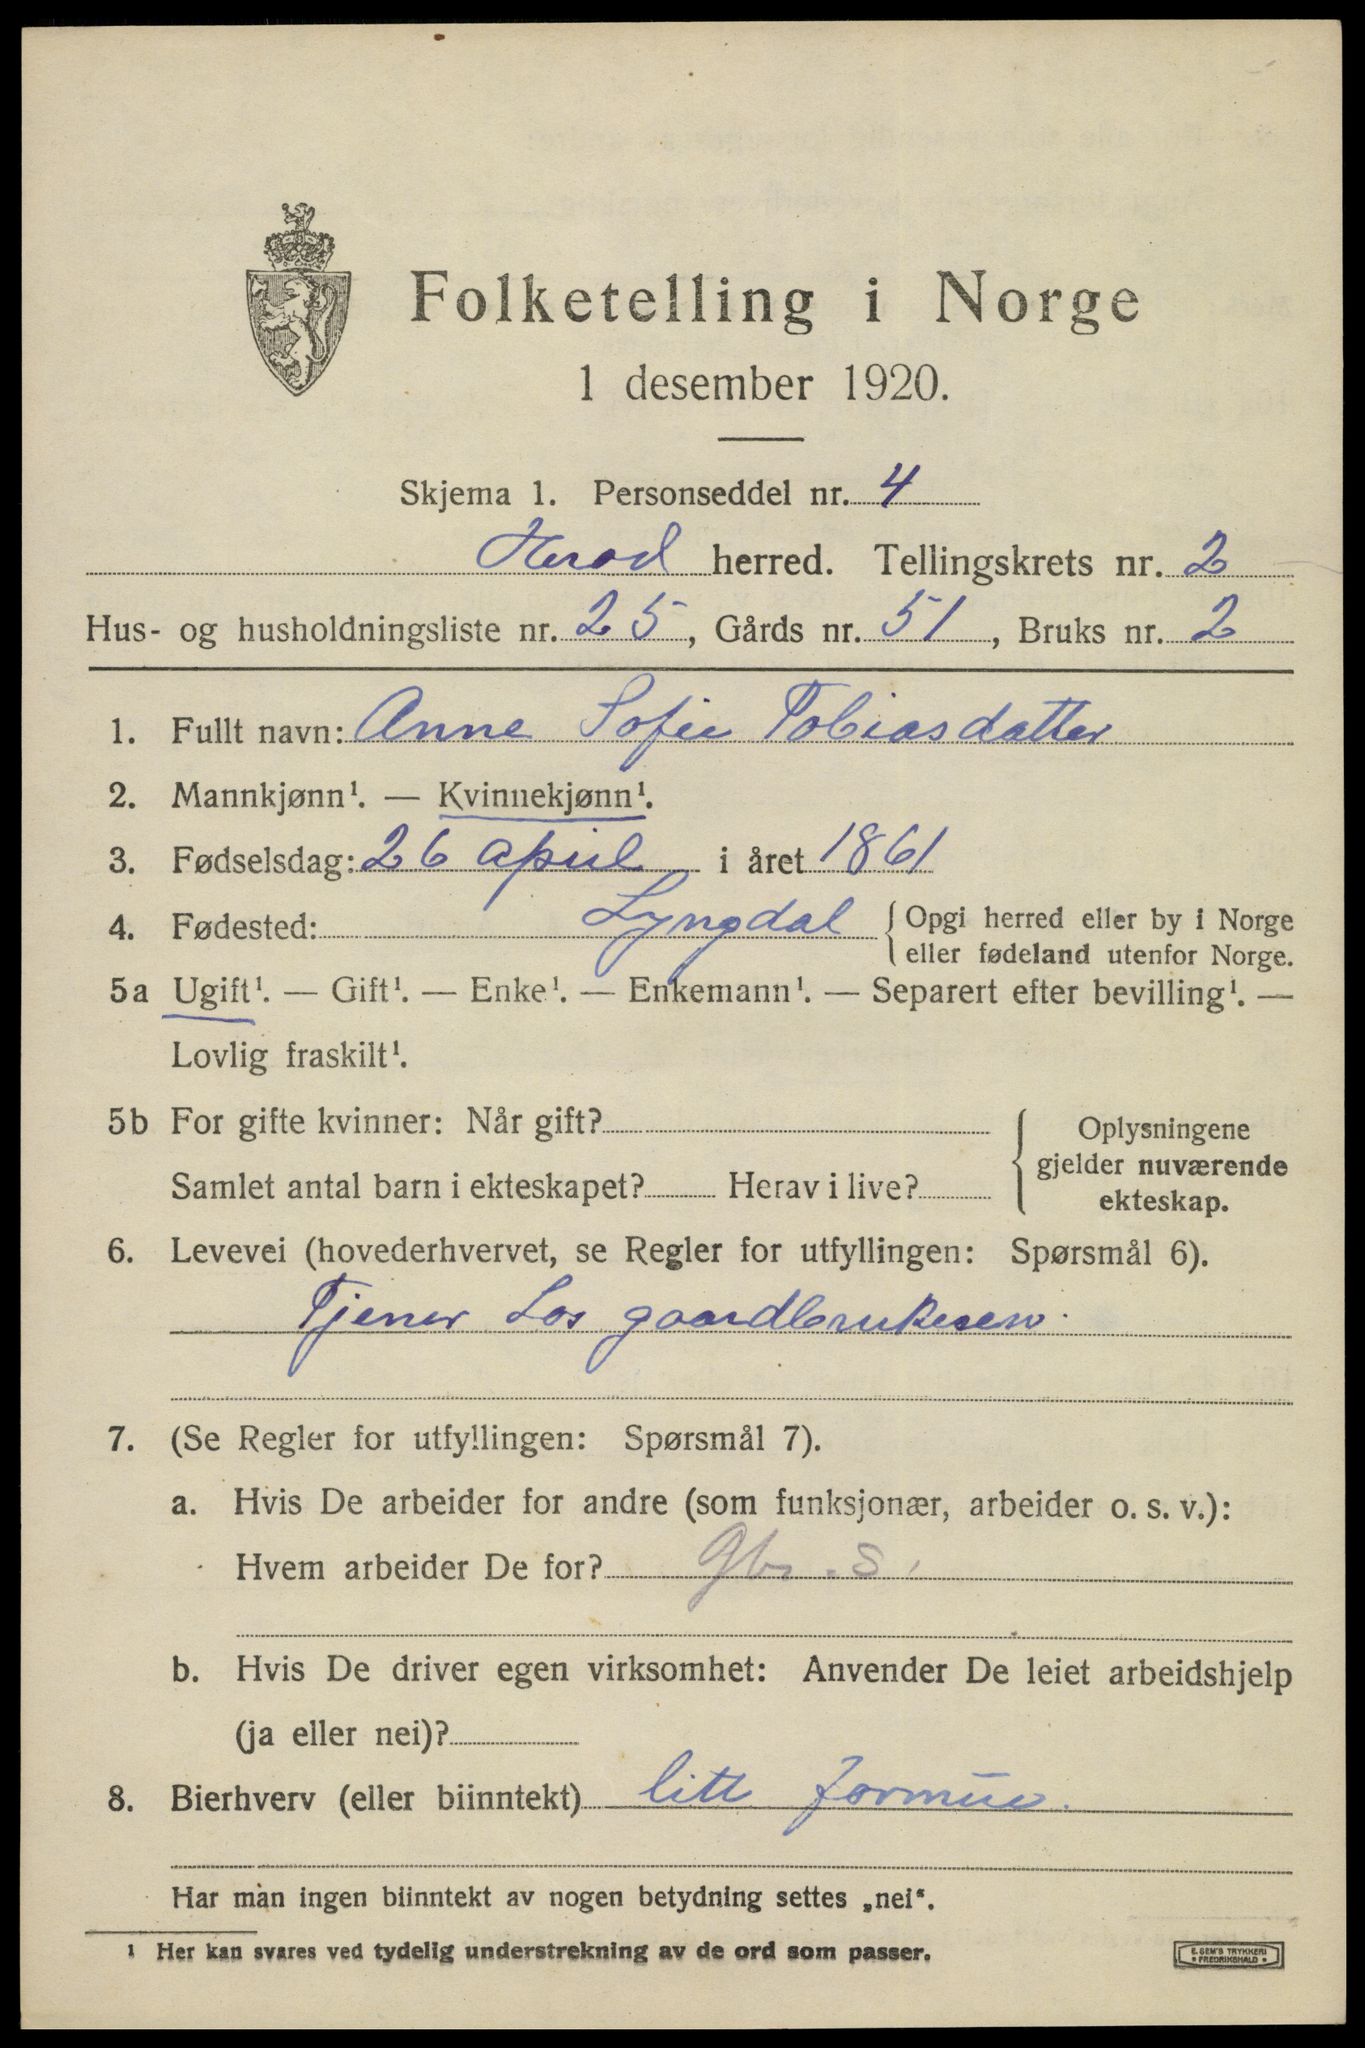 Folketelling i Norge
1 desember 1920.
Skjema 1. Personseddel nr. 4
Herad herred. Tellingskrets nr. 2
Hus- og husholdningsliste nr. 25, Gårds nr. 51, Bruks nr. 2
1. Fullt navn: Anne Sofie Tobiasdatter
2. Mannkjønn¹. — Kvinnekjønn¹.
3. Fødselsdag: 26 april i året 1861
4. Fødested: Lyngdal { Opgi herred eller by i Norge
eller fødeland utenfor Norge.
5a Ugift¹. — Gift¹. — Enke¹. — Enkemann¹. — Separert efter bevilling¹. —
Lovlig fraskilt¹.
5b For gifte kvinner: Når gift?
Samlet antal barn i ekteskapet? Herav i live?
Oplysningene
gjelder nuværende
ekteskap.
6. Levevei (hovederhvervet, se Regler for utfyllingen: Spørsmål 6).
Tjener hos gaardbrukeren.
7. (Se Regler for utfyllingen: Spørsmål 7).
a. Hvis De arbeider for andre (som funksjonær, arbeider o. s. v.):
Hvem arbeider De for? Gbr. S.
b. Hvis De driver egen virksomhet: Anvender De leiet arbeidshjelp
(ja eller nei)?
8. Bierhverv (eller biinntekt) litt formue.
Har man ingen biinntekt av nogen betydning settes „nei“.
¹ Her kan svares ved tydelig understrekning av de ord som passer.
E. SEM'S TRYKKERI
FREDRIKSHALD